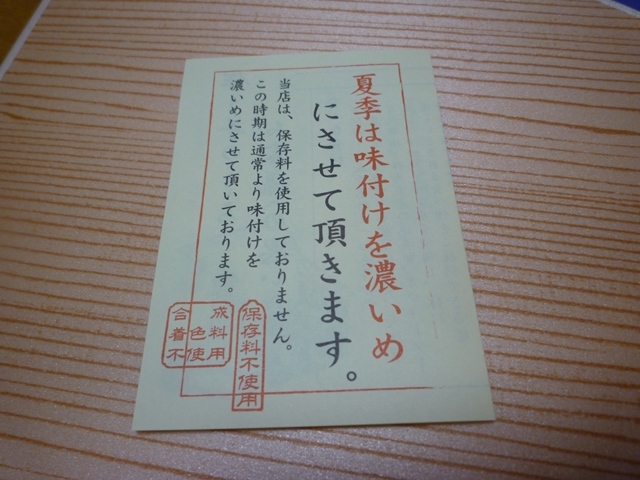 夏季は味付けを濃いめ
にさせて頂きます。
当店は、保存料を使用しておりません。
この時期は通常より味付けを
濃いめにさせて頂いております。
保存料不使用
合成
着色料
不使用